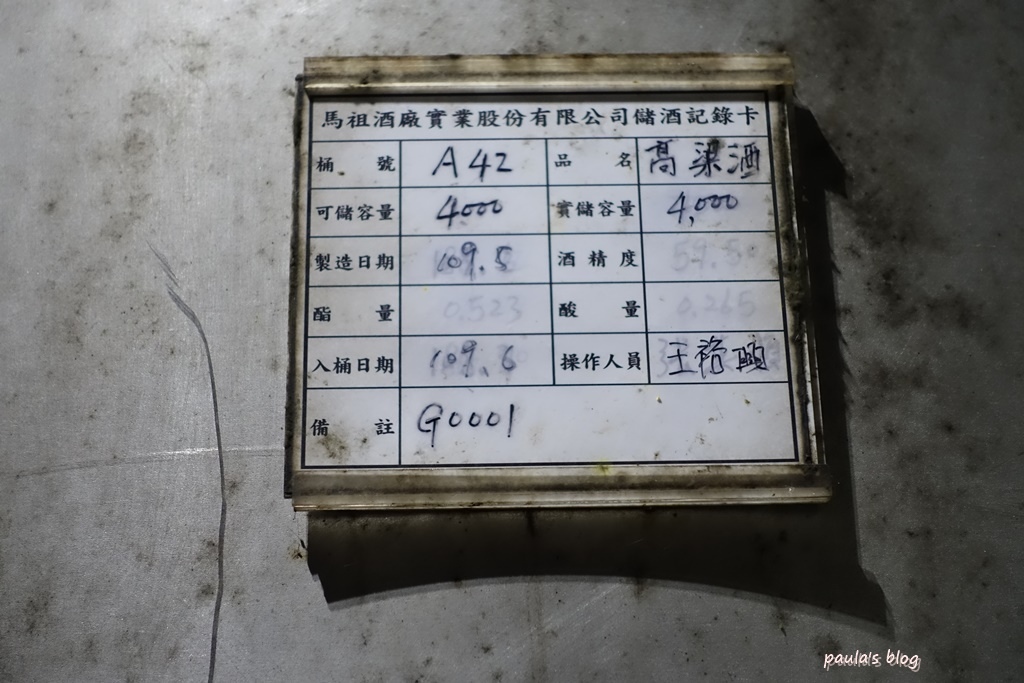 馬祖酒廠實業股份有限公司儲酒記錄卡
桶號 A42 品名 高粱酒
可儲容量 4000 實儲容量 4,000
製造日期 109.5 酒精度 59.5
酯量 0.523 酸量 0.265
入桶日期 109.6 操作人員 王裕頤
備註 G0001
paula's blog